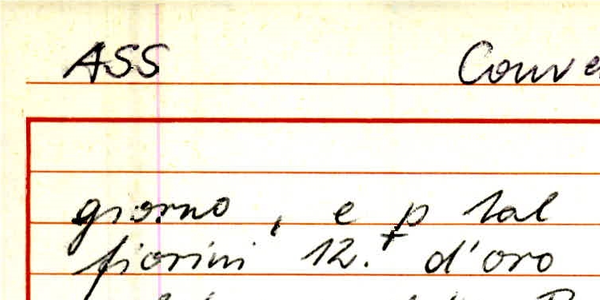 ASS Conve
giorno, e p tal
fiorini 12. d'oro